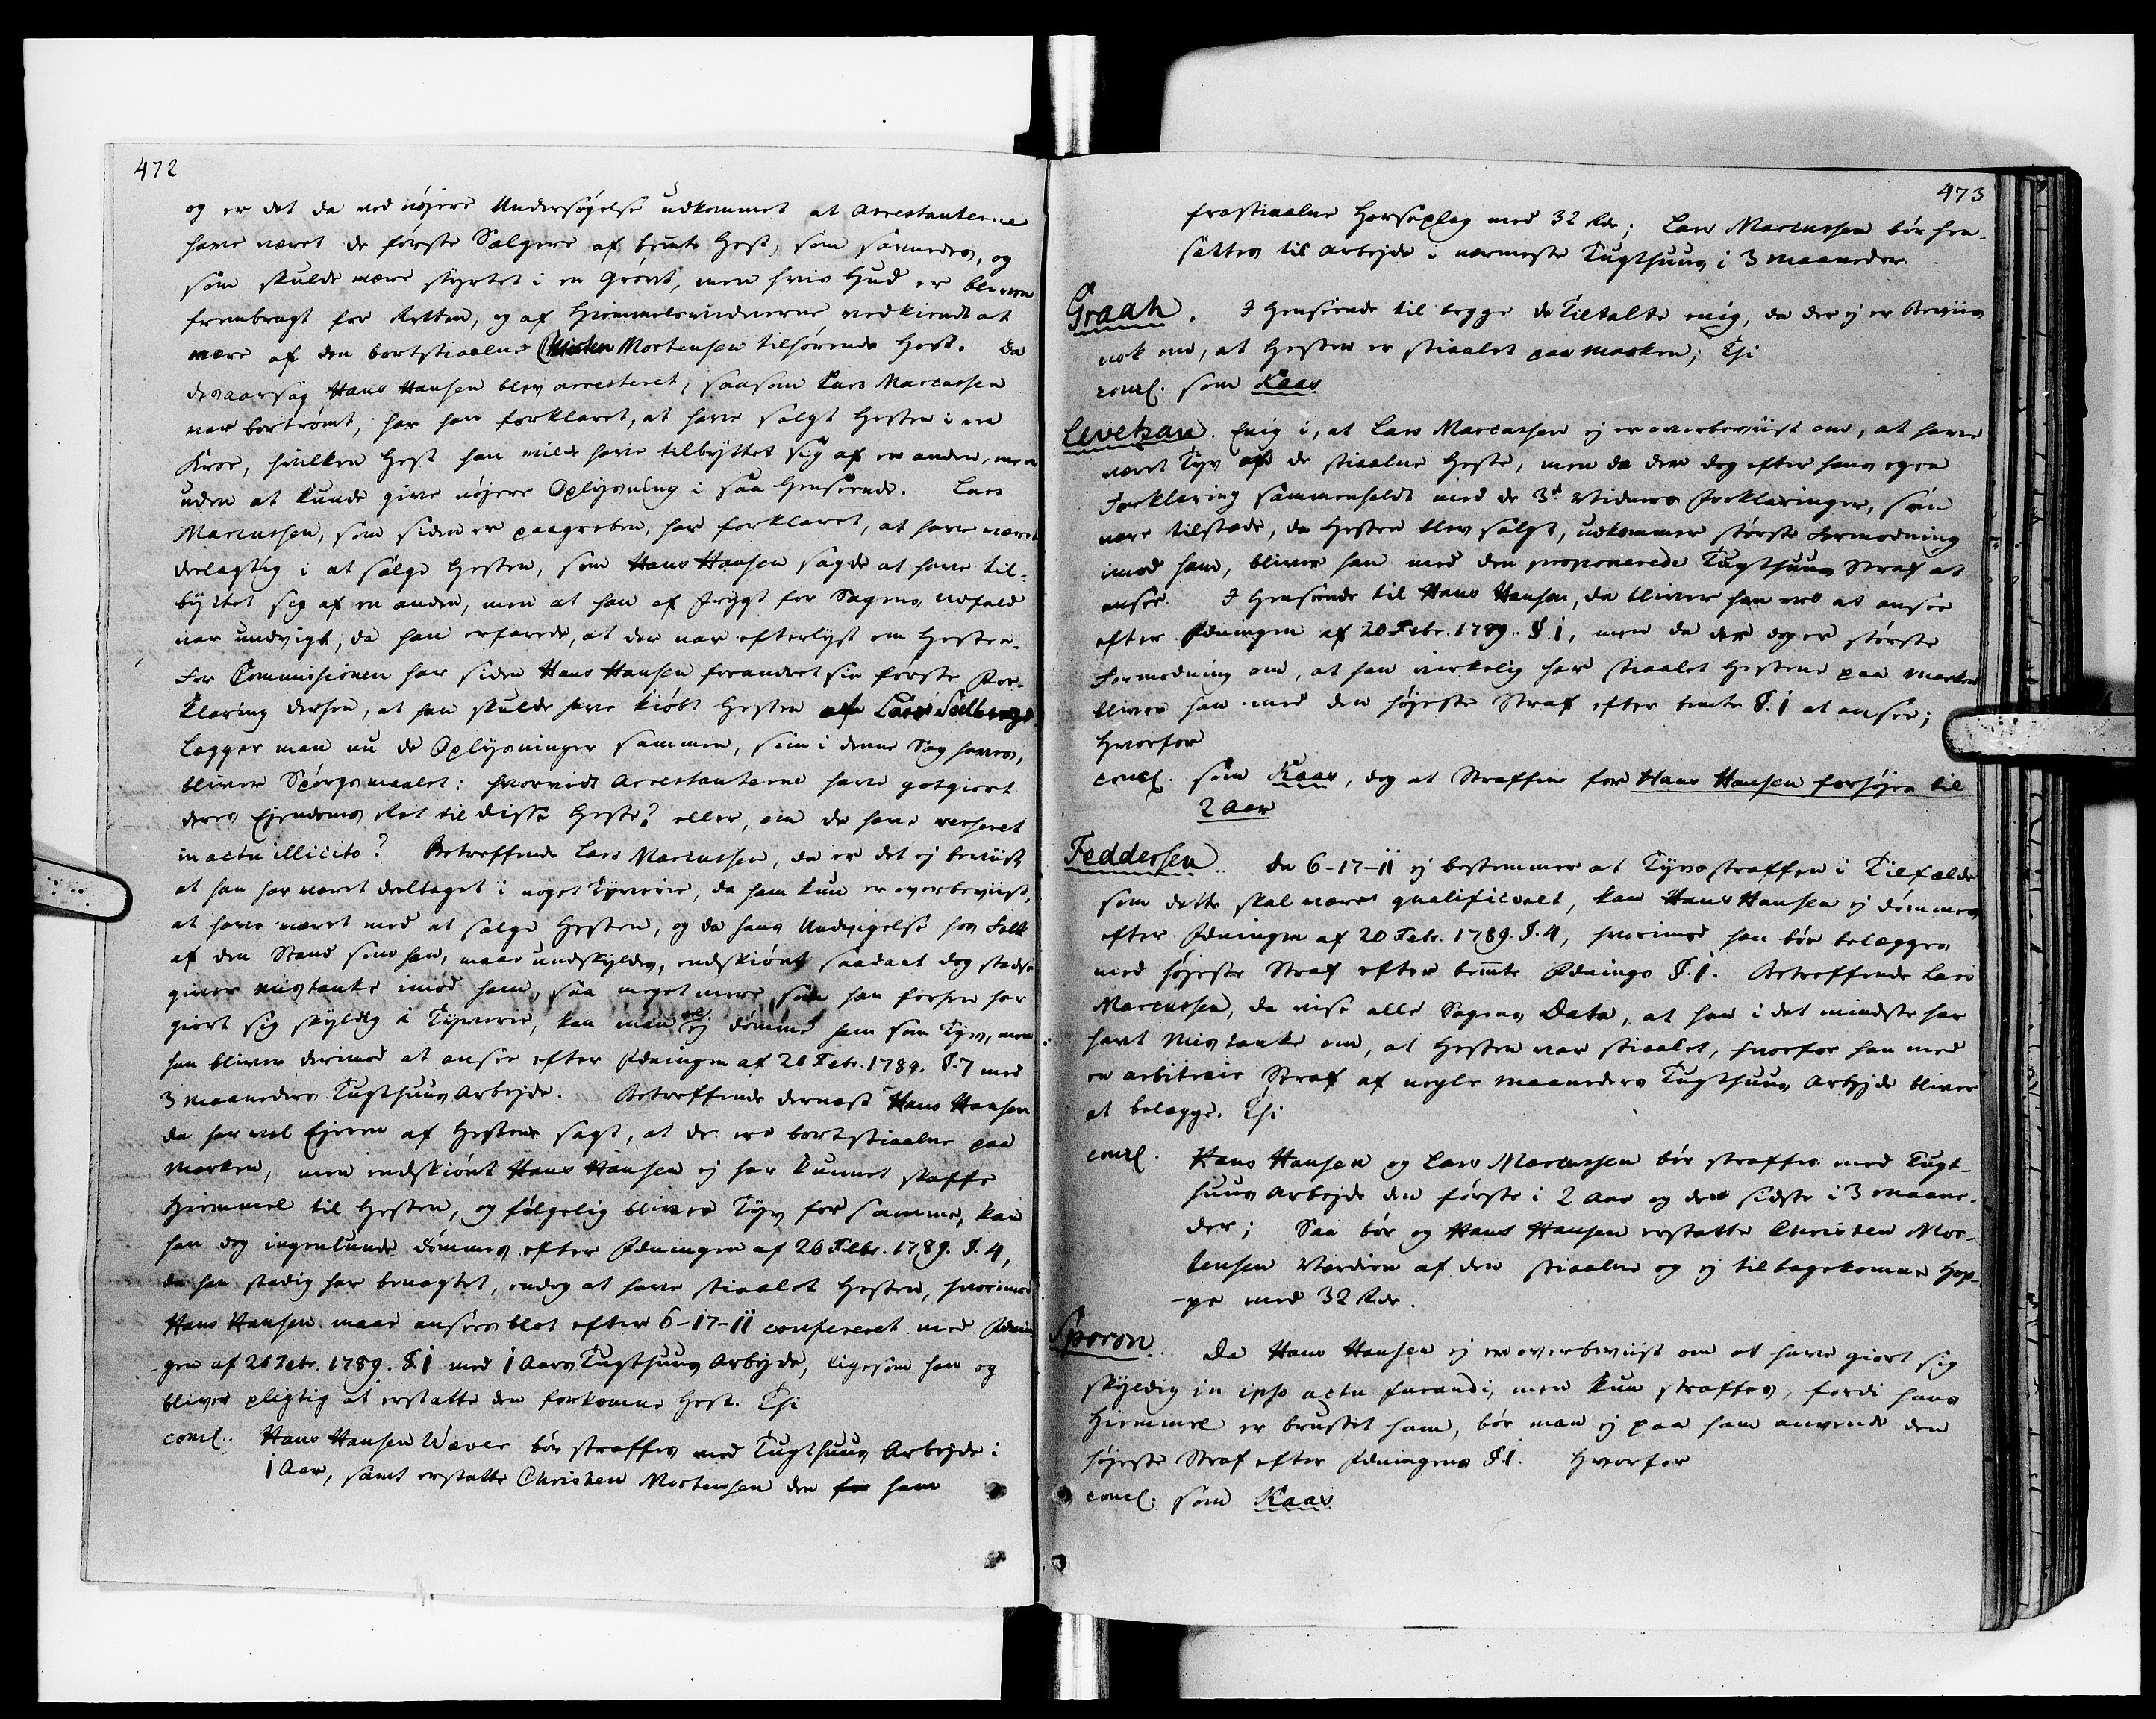 472
og er det da ved nøjere Undersøgelse udkommet at Arrestanterne
have været de første Sælgere af bemte Hest, som saaledes, og
som skulde være styrtet i en Grøvt, men hvis Hud er bleven
frembragt for Retten, og af Hiemmelsvidnerne vedkiendt at
være af den bortstiaalne Christen Mortensen tilhørende Hest. Da
desaarsag Hans Hansen blev arresteret, saasom Lars Marcussen
var bortrømt, har han forklaret, at have solgt Hesten i en
Kroe, hvilken Hest han vilde have tilbyttet sig af en anden, men
uden at kunde give nøjere Oplysning i saa Henseende. Lars
Marcussen, som siden er paagreben, har forklaret, at have været
deelagtig i at sælge Hesten, som Hans Hansen sagde at have til-
byttet sig af en anden, men at han af Frygt for Sagens Udfald
var undvigt, da han erfarede, at der var efterlyst om Hesten.
For Commissionen har siden Hans Hansen forandret sin første For-
klaring derhen, at han skulde have kiøbt Hesten af Lars
Lægger man nu de Oplysninger sammen, som i denne Sag haves,
bliver Spørgsmaalet: hvorvidt Arrestanterne have godgiort
deres Ejendoms Ret til disse Heste? eller, om de have verseret
in actu illicito? Betreffende Lars Marcussen, da er det ej beviist
at han har været deeltaget i noget Tyverie, da han kun er overbeviist,
at have været med at sælge Hesten, og da hans Undvigelse hos Folk
af den Stand som han, maae undskyldes, endskiønt saadant dog stedse
giver Mistanke imod ham, saa meget mere som han forhen har
giort sig skyldig i Tyverie, kan man vel ej dømme ham som Tyv, men
han bliver derimod at ansee efter Fdningen af 20 Febr. 1789. §. 7 med
3 Maaneders Tugthuus Arbejde. Betreffende dernæst Hans Hansen
da har vel Ejeren af Hestene sagt, at de ere bortstiaalne paa
Marken, men endskiønt Hans Hansen ej har kunnet skaffe
Hiemmel til Hesten, og følgelig bliver Tyv for samme, kan
han dog ingenlunde dømmes efter Fdningen af 20 Febr. 1789. §. 4,
da han stadig har benægtet, endog at have stiaalet Hesten, hvorimod
Hans Hansen maae ansees blot efter 6-17-11 confereret med Fdnin-
-gen af 20 Febr. 1789. §. 1 med 1 Aars Tugthuus Arbejde, ligesom han og
bliver pligtig at erstatte den forkomne Hest. Thi
concl. Hans Hansen Wæver bør straffes med Tugthuus Arbejde i
1 Aar, samt erstatte Christen Mortensen den for ham
473
frastiaalne Horseplag med 32 Rdr; Lars Marcussen bør hen-
sættes til Arbejde i nærmeste Tugthuus i 3 Maaneder.
Graah. I Henseende til begge de Tiltalte enig, da der ej er Beviis
nok om, at Hesten er stiaalet paa Marken; Thi
concl. som Kaas
Levetzau. Enig i, at Lars Marcussen ej er overbeviist om, at have
været Tyv af de stiaalne Heste, men da der dog efter hans egen
Forklaring sammenholdt med de 3de Vidners Forklaringer, som
vare tilstæde, da Hesten blev solgt, udkommer største Formodning
imod ham, bliver han med den proponerede Tugthuus Straf at
ansee. I Henseende til Hans Hansen, da bliver han vel at ansee
efter Fdningen af 20 Febr. 1789. §. 1, men da der dog er største
Formodning om, at han virkelig har stiaalet Hestene paa Marken
bliver han med den højeste Straf efter bemte §. 1 at ansee;
Hvorfor
concl. som Kaas, dog at Straffen for Hans Hansen forhøjes til
2 Aar
Feddersen. Da 6-17-11 ej bestemmer at Tyvsstraffen i Tilfælde
som dette skal være qualificeret, kan Hans Hansen ej dømmes
efter Fdningen af 20 Febr. 1789. §. 4, hvorimod han bør belægges
med højeste Straf efter bemte Fdnings §. 1. Betreffende Lars
Marcussen, da vise alle Sagens Data, at han i det mindste har
havt Mistanke om, at Hesten var stiaalet, hvorfor han med
en arbitrair Straf af nogle Maaneders Tugthuus Arbejde bliver
at belægge. Thi
concl. Hans Hansen og Lars Marcussen bør straffes med Tugt-
huus Arbejde den første i 2 Aar og den sidste i 3 Maane-
der; Saa bør og Hans Hansen erstatte Christen Mor-
tensen Værdien af den stiaalne og ej tilbagekomne Hop-
-pe med 32 Rdr.
Sporon. Da Hans Hansen ej er overbeviist om at have giort sig
skyldig in ipso actu furandi, men kun straffes, fordi hans
Hiemmel er brustet ham, bør man ej paa ham anvende den
højeste Straf efter Fdningens §. 1. Hvorfor
concl. som Kaas